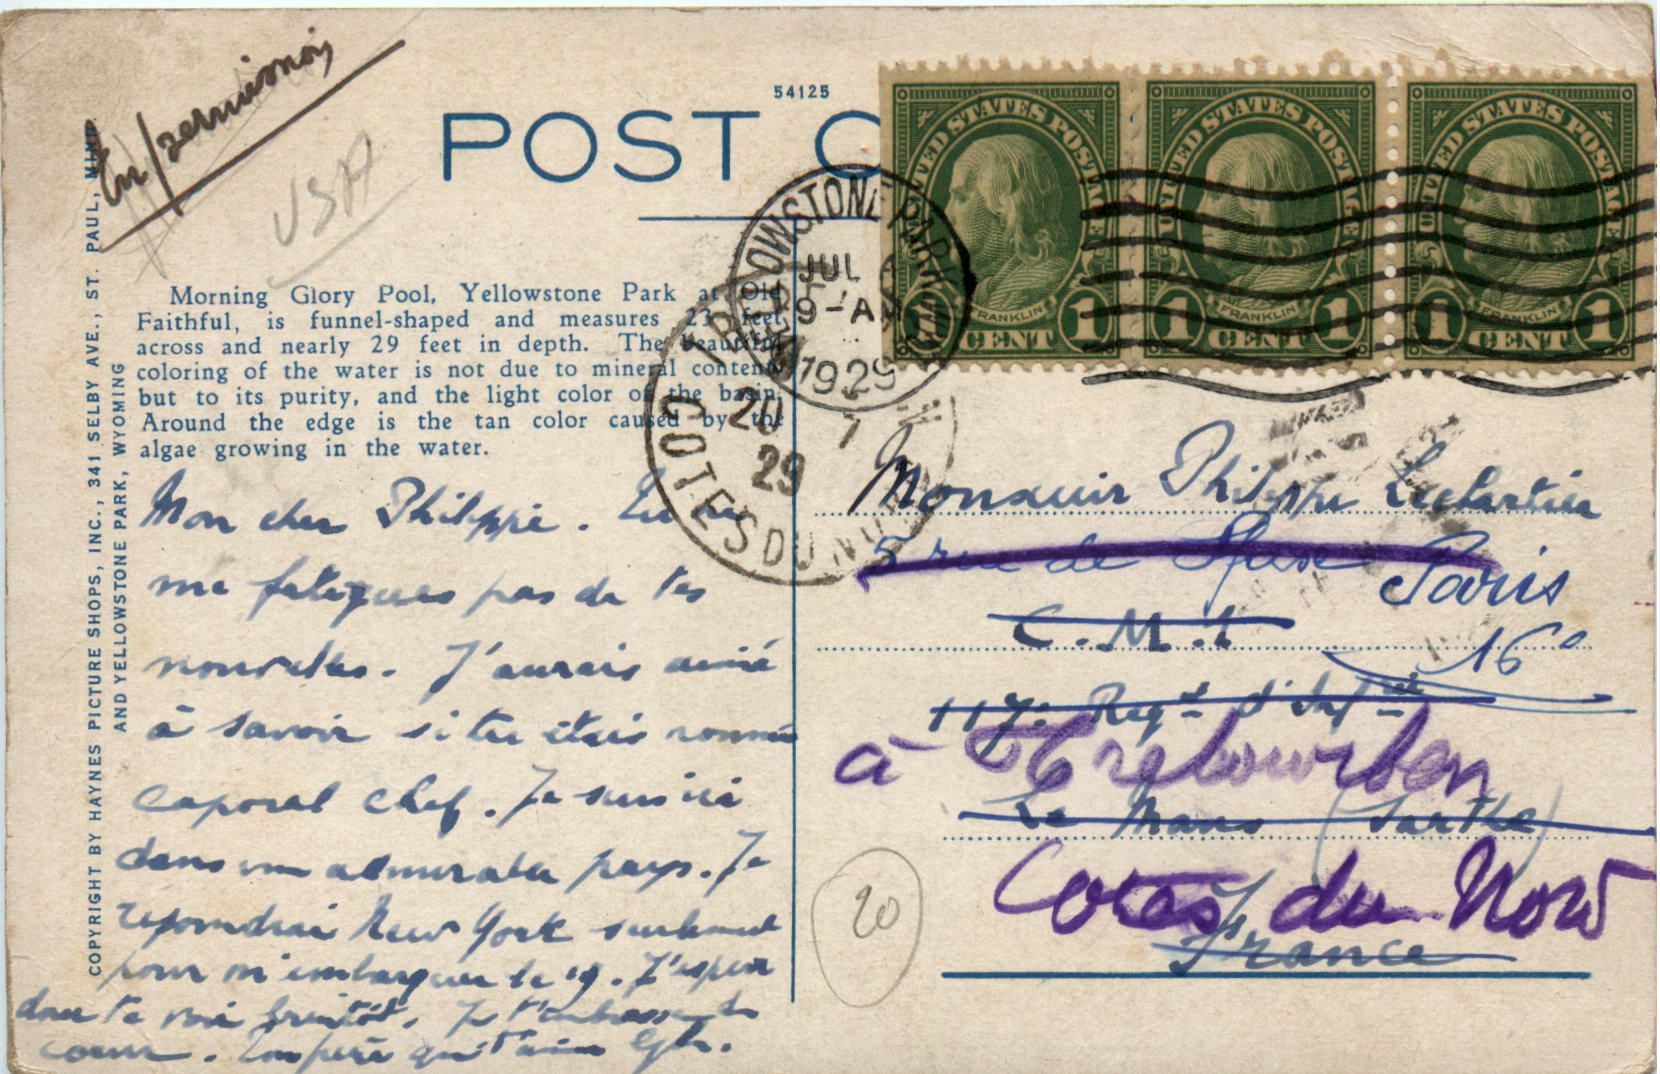 En permission
USA
54125
POST C
YELLOWSTONE PARK, WYO.
JUL
9-A
1929
UNITED STATES POSTAGE
FRANKLIN
1 CENT 1
UNITED STATES POSTAGE
FRANKLIN
1 CENT 1
UNITED STATES POSTAGE
FRANKLIN
1 CENT 1
COTES DU NORD
20 7
29
COPYRIGHT BY HAYNES PICTURE SHOPS, INC., 341 SELBY AVE., ST. PAUL, MINN.
AND YELLOWSTONE PARK, WYOMING
Morning Glory Pool, Yellowstone Park at Old
Faithful, is funnel-shaped and measures 23 feet
across and nearly 29 feet in depth. The beautiful
coloring of the water is not due to mineral content
but to its purity, and the light color of the basin.
Around the edge is the tan color caused by the
algae growing in the water.
Mon cher Philippe. Tu ne
me fatigues pas de tes
nouvelles. J'aurais aimé
à savoir si tu étais nommé
caporal chef. Je suis ici
dans un admirable pays. Je
rejoindrai New York seulement
pour m'embarquer le 19. J'espère
donc te voir bientôt. Je t'embrasse de
coeur. Ton père qui t'aime
Monsieur Philippe Lechartier
5 rue de Paris
C.M.1 16e
117e Regt d'Infie
à Trebeurden
Le Mans (Sarthe)
Cotes du Nord
France
20